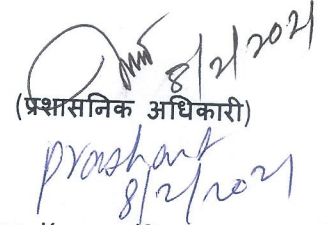 8/2/2021
(प्रशासनिक अधिकारी)
Prashant
8/2/2021